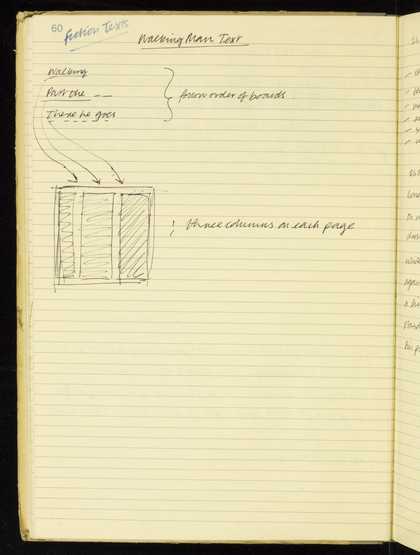 60
Fiction Texts
Walking Man Text
Walking
Past the _ _
There he goes
from order of boards
three columns on each page